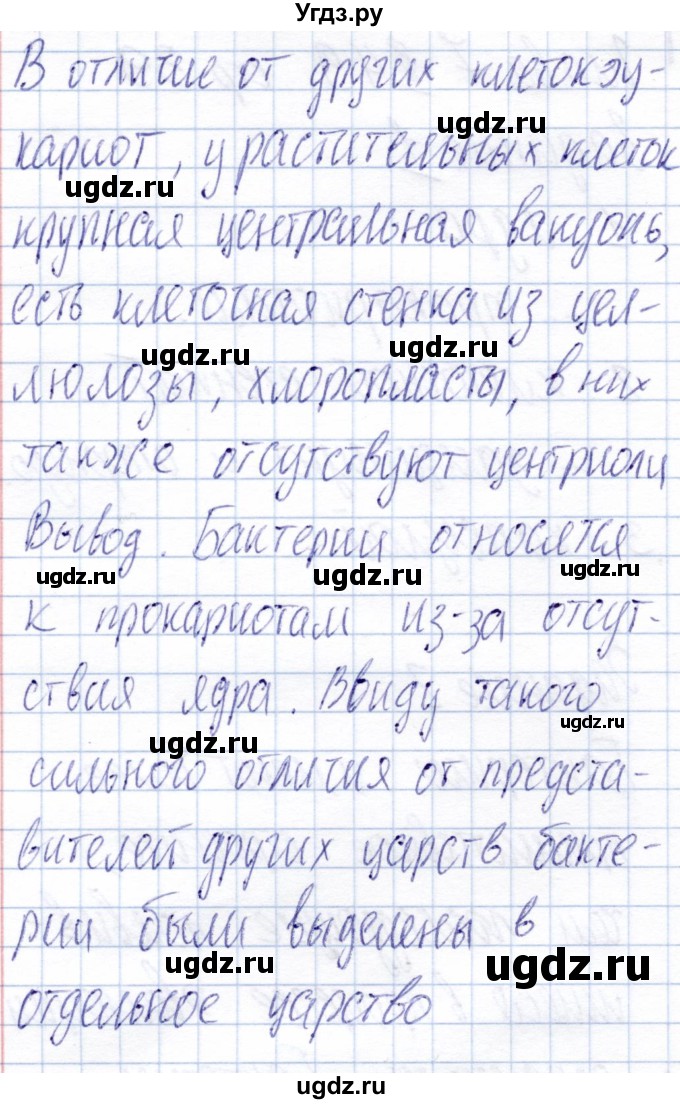 Угдз.ру
В отличие от других клеток эу-
ugdz.ru
кариот, у растительных клеток
ugdz.ru
крупная центральная вакуоль,
есть клеточная стенка из цел-
ugdz.ru ugdz.ru
люлозы, хлоропласты, в них
также отсутствуют центриоли
Вывод. Бактерии относятся
ugdz.ru ugdz.ru ugdz.ru
к прокариотам из-за отсут-
ствия ядра. Ввиду такого
ugdz.ru ugdz.ru
сильного отличия от предста-
вителей других царств бакте-
рии были выделены в
ugdz.ru ugdz.ru
отдельное царство
ugdz.ru